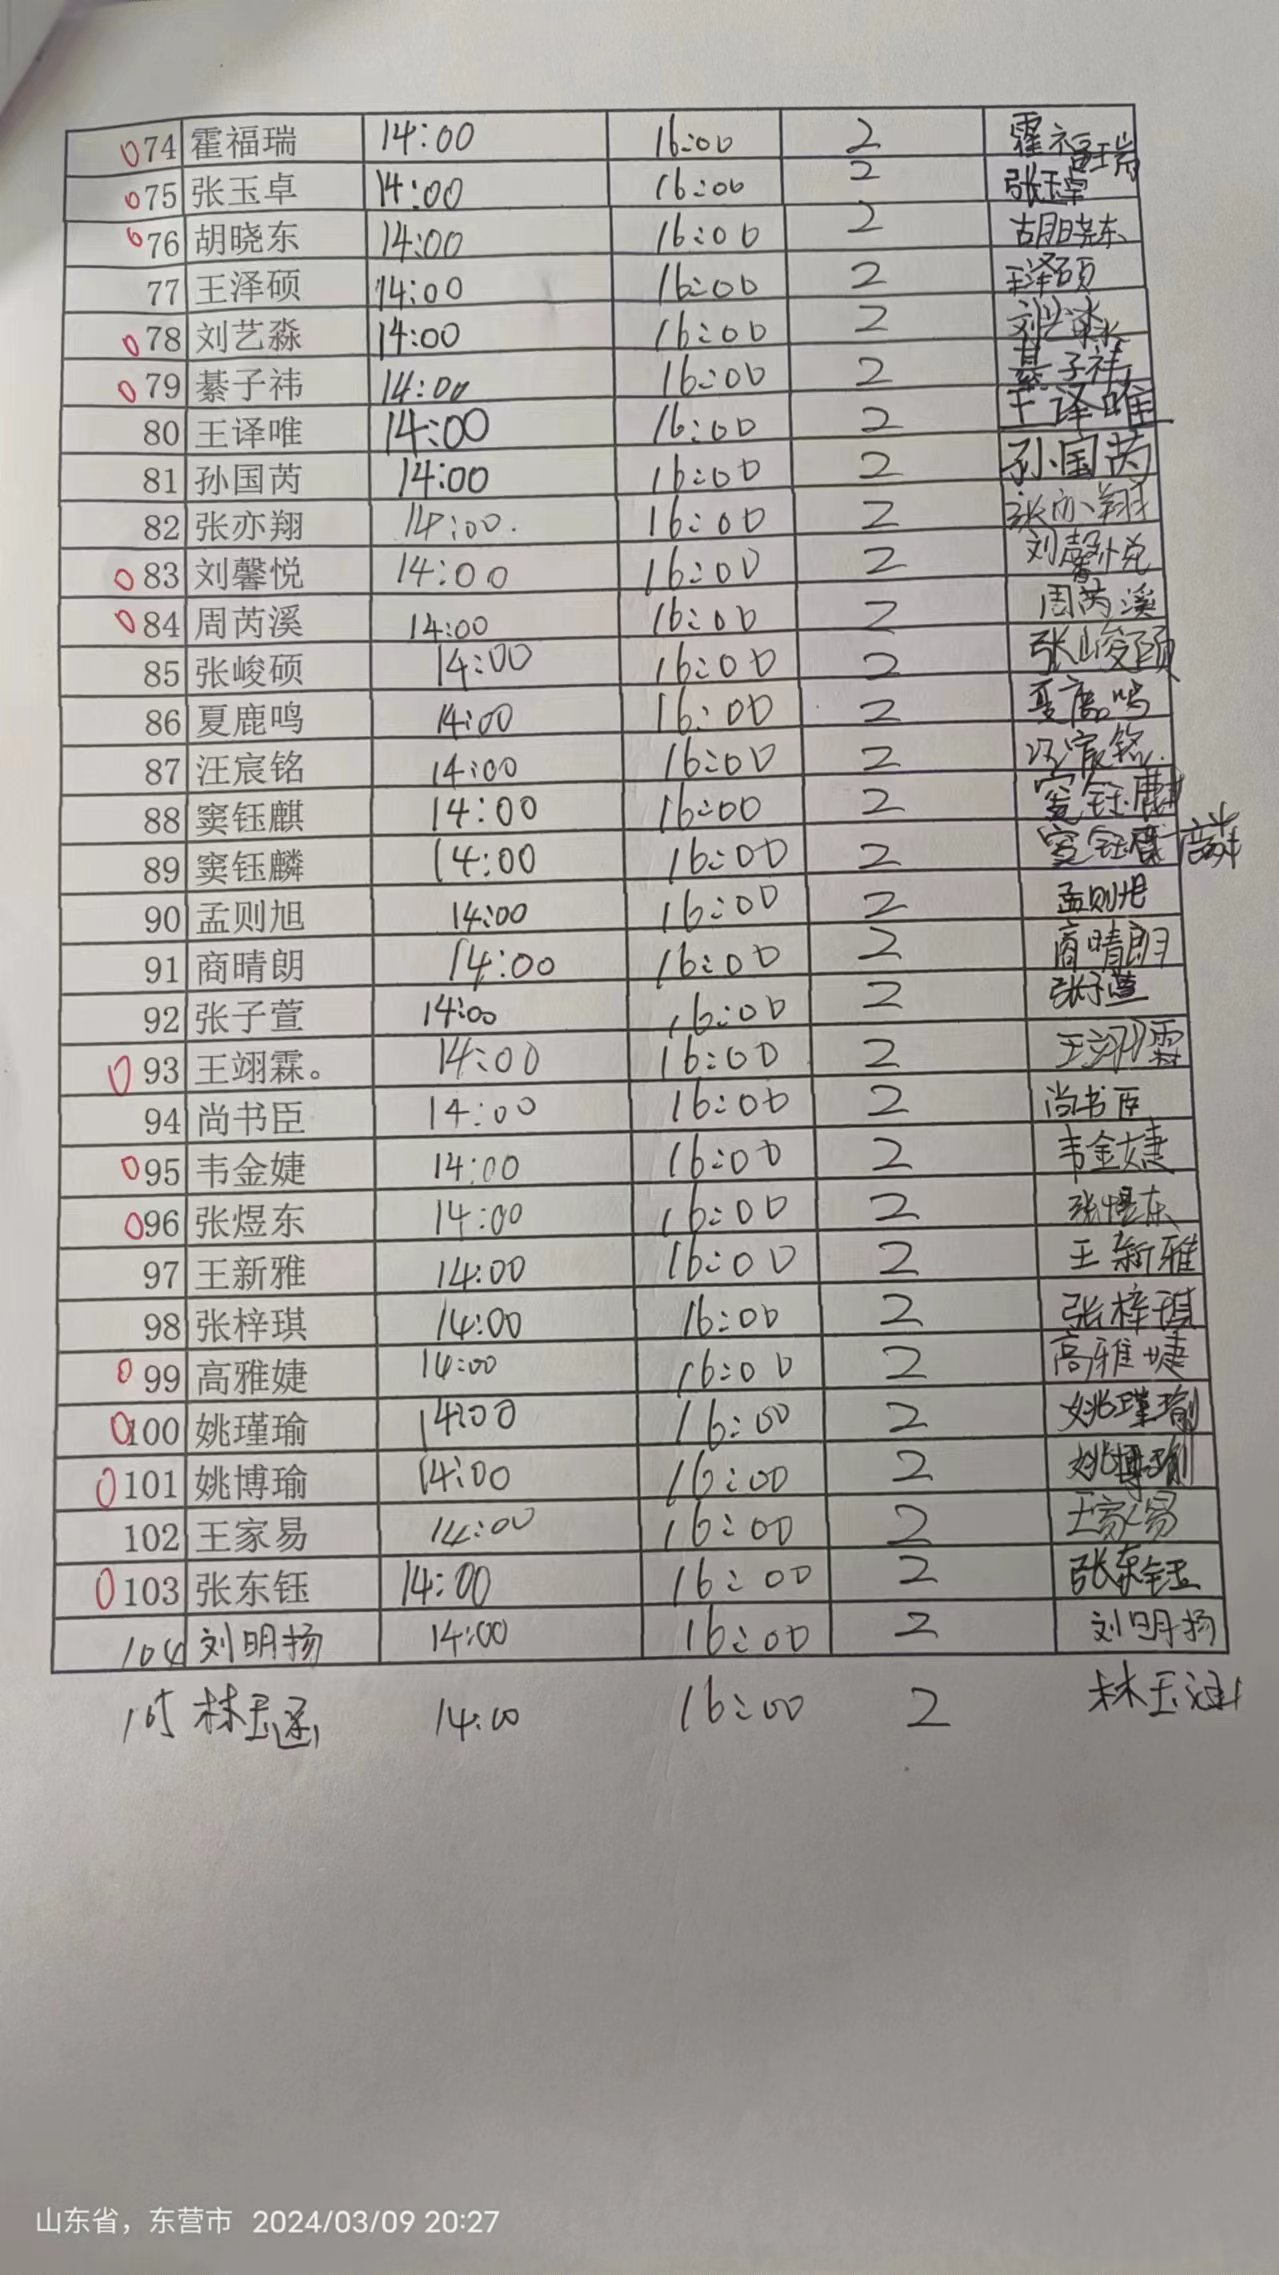 074 霍福瑞 14:00 16:00 2 霍福瑞
075 张玉卓 14:00 16:00 2 张玉卓
076 胡晓东 14:00 16:00 2 胡晓东
77 王泽硕 14:00 16:00 2 王泽硕
078 刘艺淼 14:00 16:00 2 刘艺淼
079 綦子祎 14:00 16:00 2 綦子祎
80 王译唯 14:00 16:00 2 王译唯
81 孙国芮 14:00 16:00 2 孙国芮
82 张亦翔 14:00. 16:00 2 张亦翔
083 刘馨悦 14:00 16:00 2 刘馨悦
084 周芮溪 14:00 16:00 2 周芮溪
85 张峻硕 14:00 16:00 2 张峻硕
86 夏鹿鸣 14:00 16:00 2 夏鹿鸣
87 汪宸铭 14:00 16:00 2 汪宸铭
88 窦钰麒 14:00 16:00 2 窦钰麒
89 窦钰麟 14:00 16:00 2 窦钰麟
90 孟则旭 14:00 16:00 2 孟则旭
91 商晴朗 14:00 16:00 2 商晴朗
92 张子萱 14:00 16:00 2 张子萱
093 王翊霖。 14:00 16:00 2 王翊霖
94 尚书臣 14:00 16:00 2 尚书臣
095 韦金婕 14:00 16:00 2 韦金婕
096 张煜东 14:00 16:00 2 张煜东
97 王新雅 14:00 16:00 2 王新雅
98 张梓琪 14:00 16:00 2 张梓琪
099 高雅婕 14:00 16:00 2 高雅婕
0100 姚瑾瑜 14:00 16:00 2 姚瑾瑜
0101 姚博瑜 14:00 16:00 2 姚博瑜
102 王家易 14:00 16:00 2 王家易
0103 张东钰 14:00 16:00 2 张东钰
104 刘明扬 14:00 16:00 2 刘明扬
105 林玉涵 14:00 16:00 2 林玉涵
山东省，东营市 2024/03/09 20:27